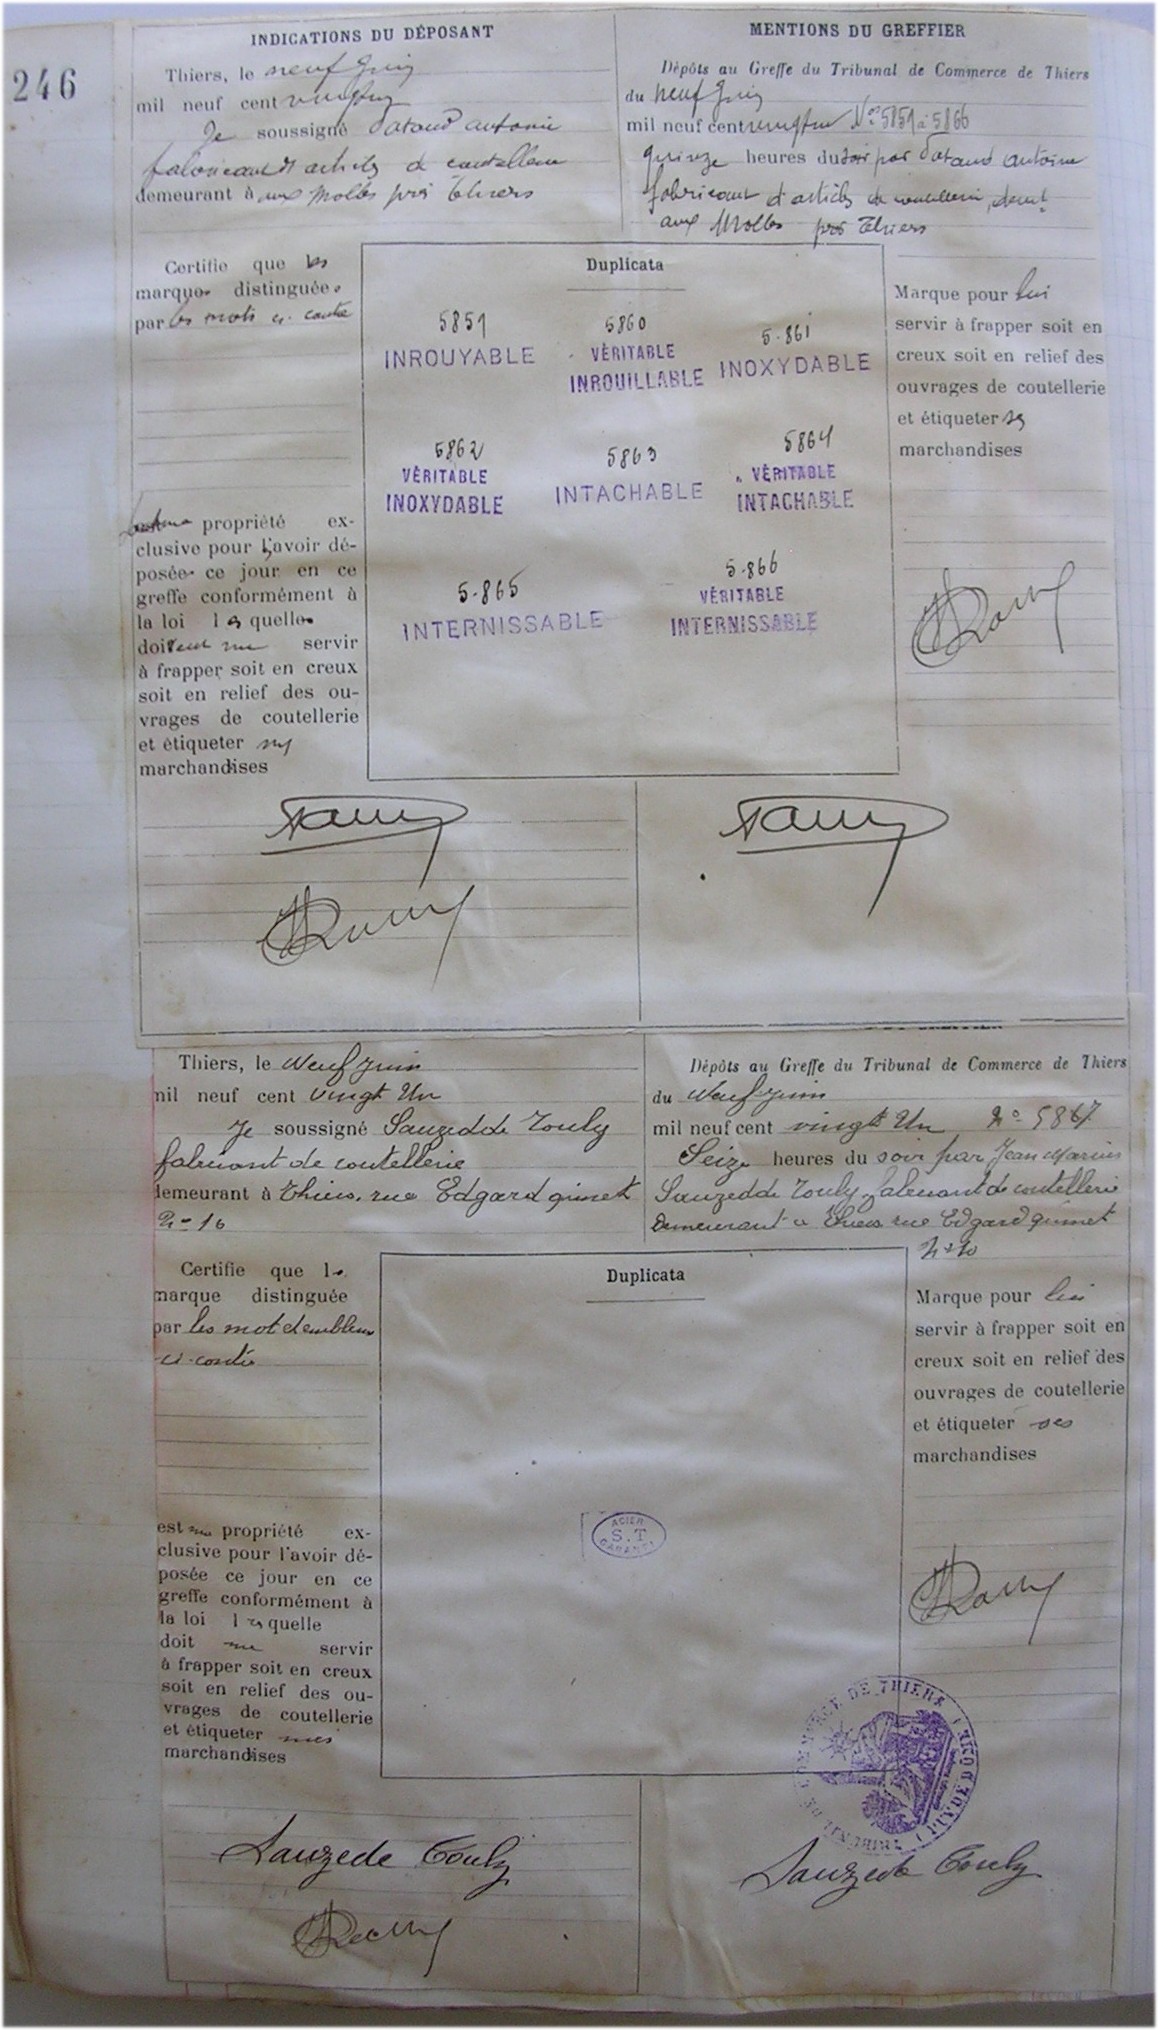 246
INDICATIONS DU DÉPOSANT
Thiers, le neuf Juin
mil neuf cent vingt un
Je soussigné Dataud antoine
fabricant d'articles de coutellerie
demeurant à aux Molles près Thiers
MENTIONS DU GREFFIER
Dépôts au Greffe du Tribunal de Commerce de Thiers
du neuf Juin
mil neuf cent vingt un Nos 5859 à 5866
quinze heures du soir par Dataud antoine
fabricant d'articles de coutellerie, demt
aux Molles près Thiers
Certifie que les
marques distinguées
par les mots ci-contre
propriété ex-
clusive pour l'avoir dé-
posée ce jour en ce
greffe conformément à
la loi lesquelles
doivent me servir
à frapper soit en creux
soit en relief des ou-
vrages de coutellerie
et étiqueter mes
marchandises
Duplicata
5859
INROUYABLE
5860
VÉRITABLE
INROUILLABLE
5.861
INOXYDABLE
5862
VÉRITABLE
INOXYDABLE
5863
INTACHABLE
5864
VÉRITABLE
INTACHABLE
5.865
INTERNISSABLE
5.866
VÉRITABLE
INTERNISSABLE
Marque pour lui
servir à frapper soit en
creux soit en relief des
ouvrages de coutellerie
et étiqueter ses
marchandises
Thiers, le Neuf Juin
mil neuf cent vingt Un
Je soussigné Sauzedde Touly
fabricant de coutellerie
demeurant à Thiers, rue Edgard quinet
No 10
Dépôts au Greffe du Tribunal de Commerce de Thiers
du Neuf Juin
mil neuf cent vingt Un No 5867
Seize heures du soir par Jean Marius
Sauzedde Touly, fabricant de coutellerie
Demeurant à Thiers rue Edgard quinet
No 10
Certifie que la
marque distinguée
par les mot et emblème
ci-contre
est ma propriété ex-
clusive pour l'avoir dé-
posée ce jour en ce
greffe conformément à
la loi laquelle
doit me servir
à frapper soit en creux
soit en relief des ou-
vrages de coutellerie
et étiqueter mes
marchandises
Duplicata
ACIER
S.T
GARANTI
Marque pour lui
servir à frapper soit en
creux soit en relief des
ouvrages de coutellerie
et étiqueter ses
marchandises
TRIBUNAL DE COMMERCE DE THIERS
PUY DE DOME
Sauzede Touly
Sauzede Touly